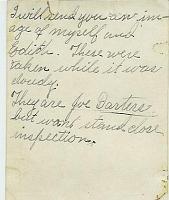 I will send you an im-
age of myself and
Edith. These were
taken while it was
cloudy.
They are Joe Darters
but wont stand close
inspection.